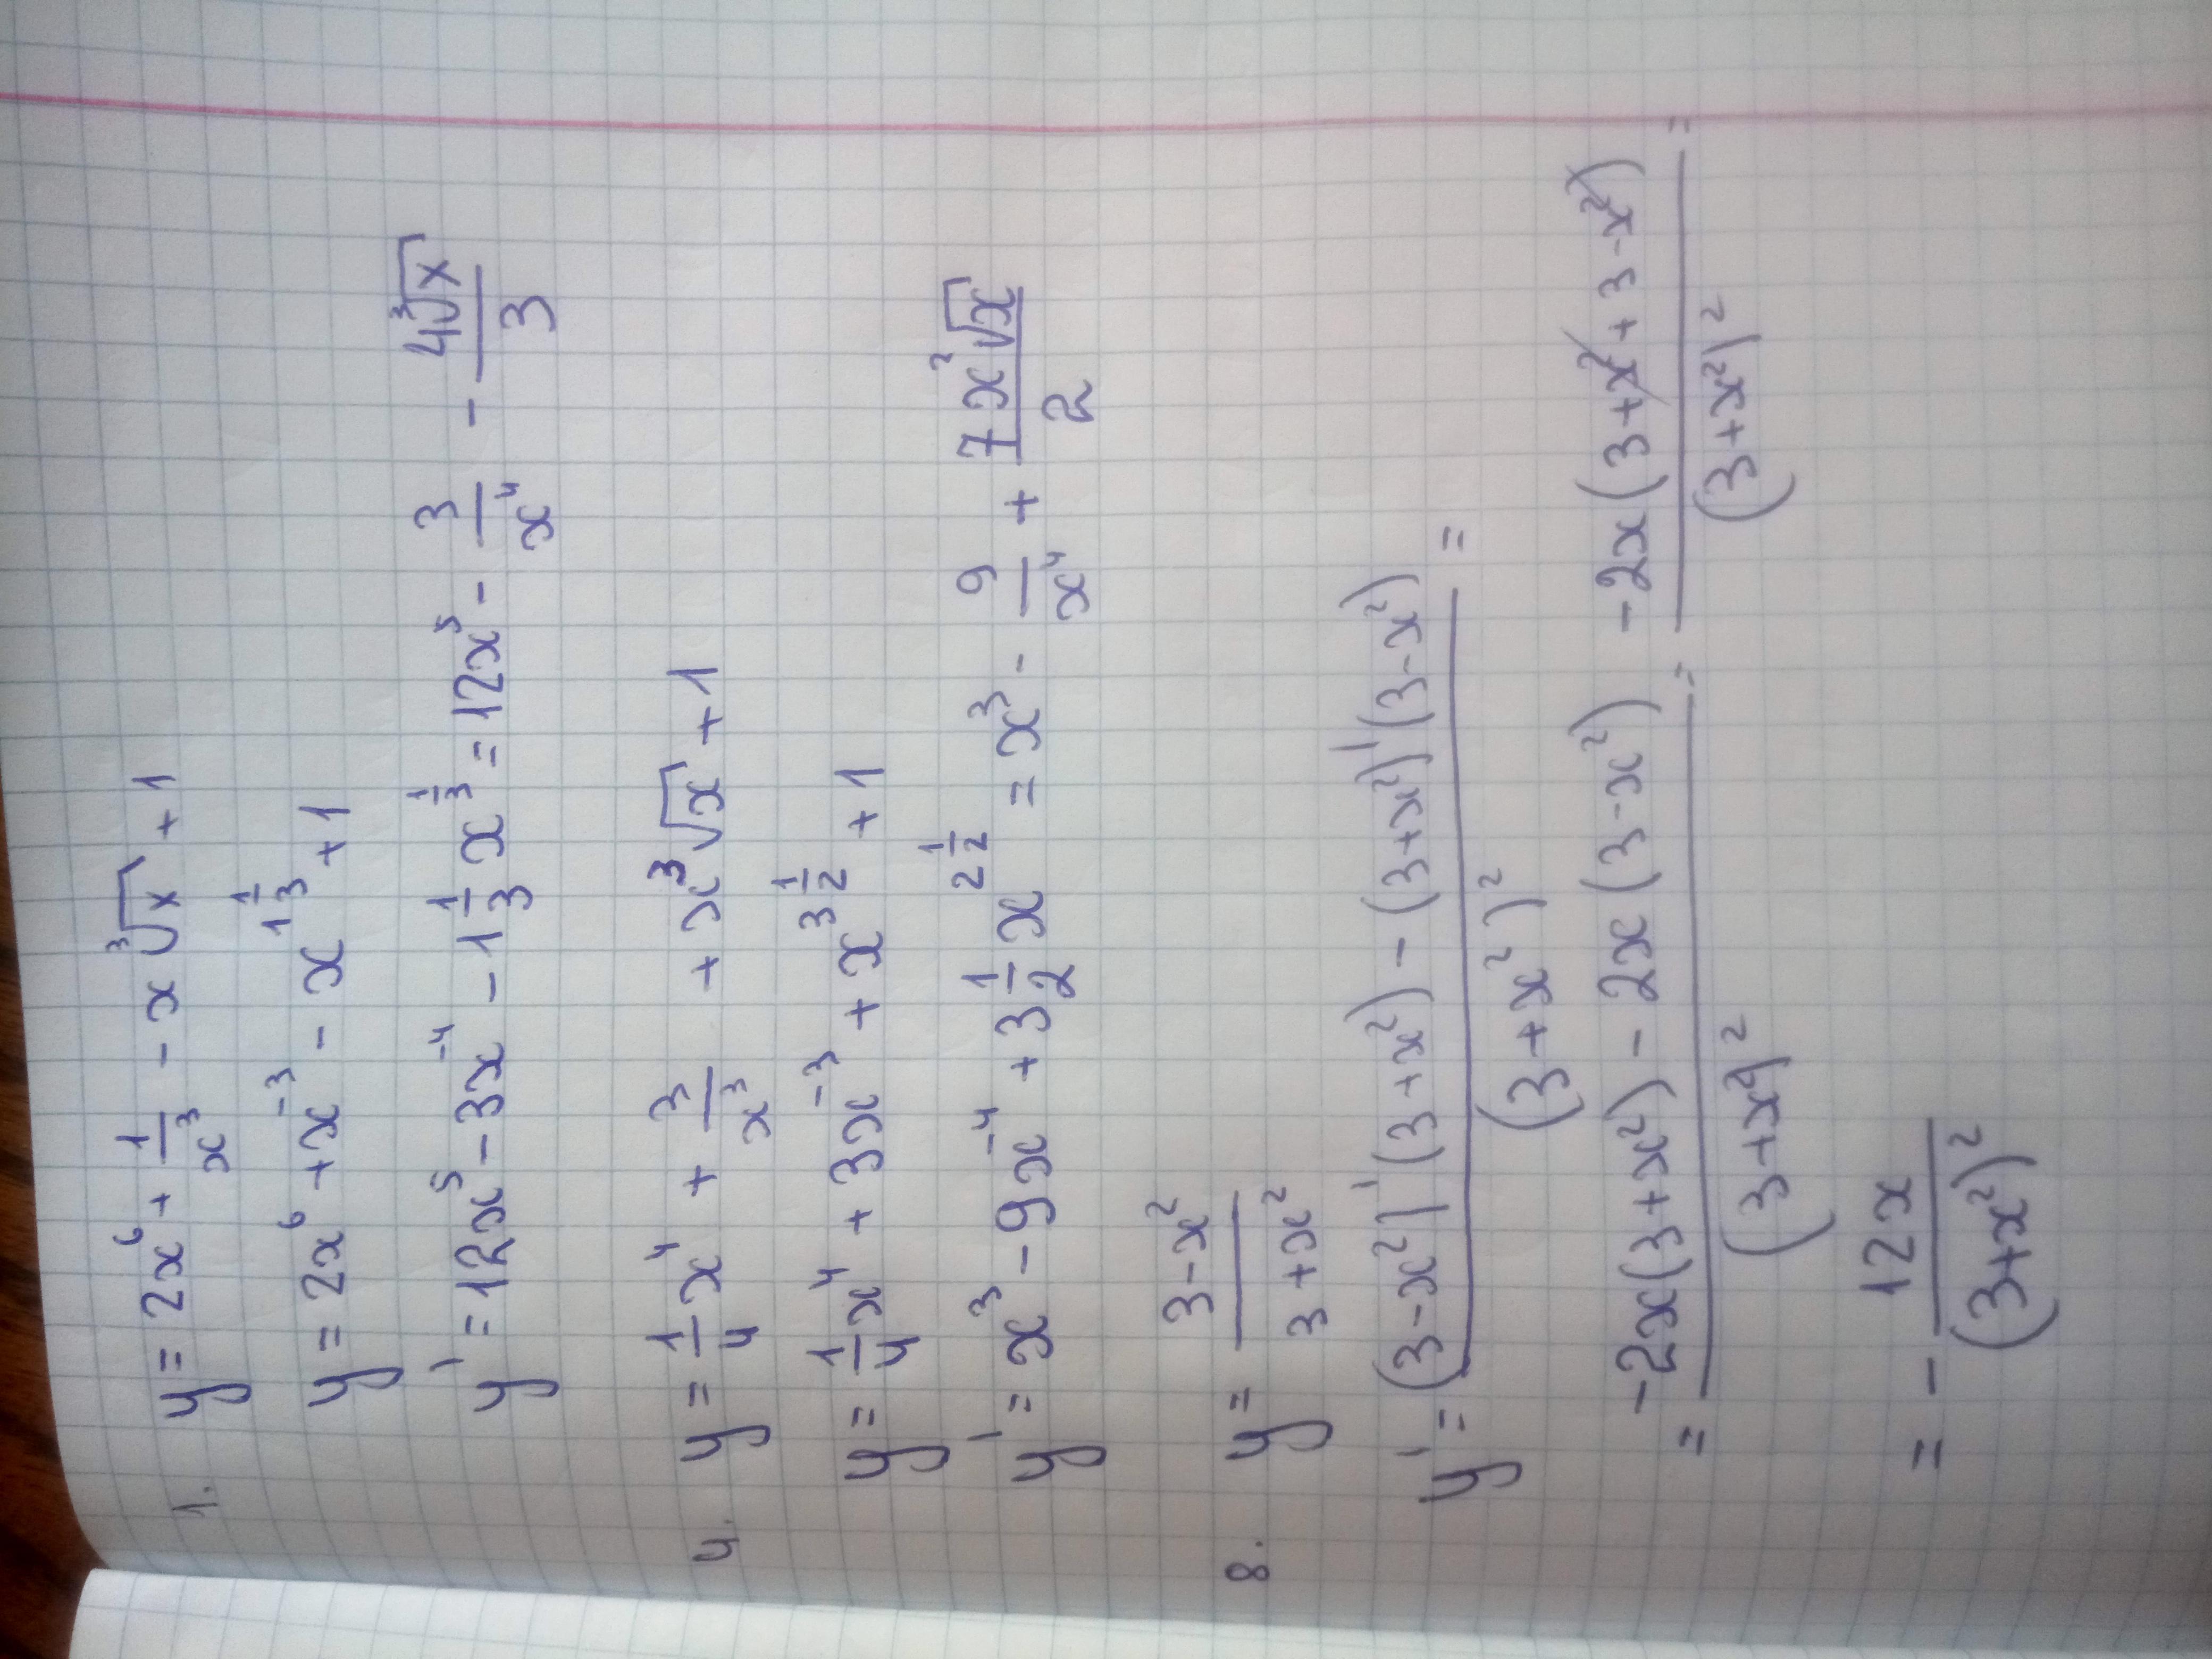 1. y = 2x⁶ + 1/x³ - x∛x + 1
y = 2x⁶ + x⁻³ - x^(1 1/3) + 1
y' = 12x⁵ - 3x⁻⁴ - 1 1/3 x^(1/3) = 12x⁵ - 3/x⁴ - 4∛x/3
4. y = 1/4 x⁴ + 3/x³ + x³√x + 1
y = 1/4 x⁴ + 3x⁻³ + x^(3 1/2) + 1
y' = x³ - 9x⁻⁴ + 3 1/2 x^(2 1/2) = x³ - 9/x⁴ + 7x²√x/2
8. y = (3 - x²)/(3 + x²)
y' = ((3 - x²)'(3 + x²) - (3 + x²)'(3 - x²))/(3 + x²)² =
= (-2x(3 + x²) - 2x(3 - x²))/(3 + x²)² = -2x(3 + x² + 3 - x²)/(3 + x²)² =
= - 12x/(3 + x²)²